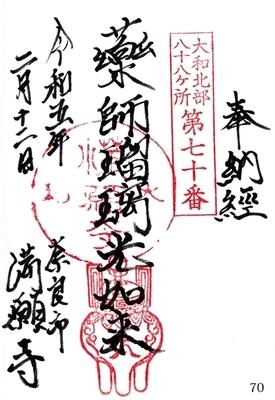 奉納經
大和北部
八十八ヶ所
第七十番
藥師瑠璃光如来
令和五年
二月十二日
奈良市
満願寺
70